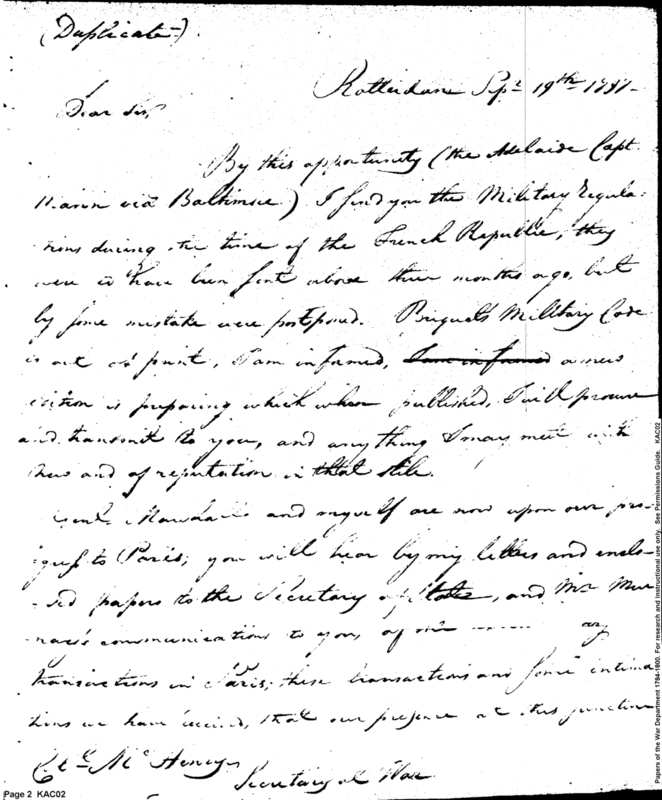 (Duplicate)
Rotterdam Sepr. 19th 1797
Dear Sir,
By this opportunity (the Adelaide Capt.
Mann via Baltimore) I send you the Military Regula-
tions during the time of the French Republic, they
were to have been sent above three months ago, but
by some mistake were postponed. Briquets Military Code
is out of print, I am informed, I am informed a new
edition is preparing which when published, I will procure
and transmit to you, and any thing I may meet with
new and of reputation in that stile.
Genl. and myself are now upon our pro-
gress to Paris; you will hear by my letters and enclo-
sed papers to the Secretary of State, and Mr. Mur
ray's communications to you, of
transactions in Paris; these transactions and some intima
tions we have received, that our presence at this juncture
Mc Henry
Secretary of War
Page 2 KAC02
Papers of the War Department 1784-1800. For research and instructional use only. See Permissions Guide. KAC02